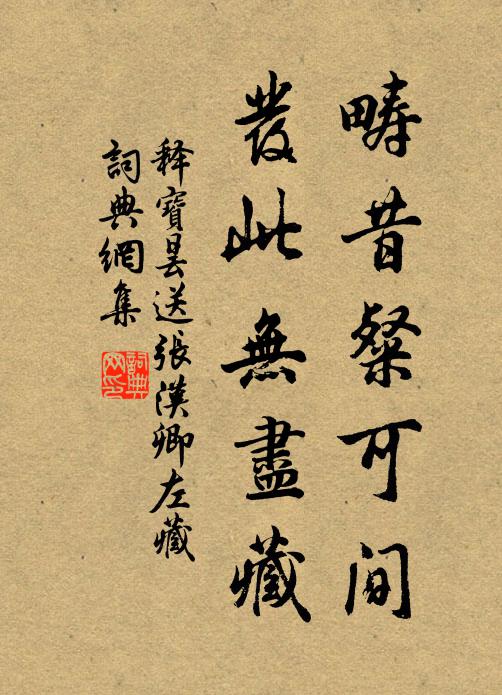 畴昔粲可间
發此無盡藏
释寶曇送張漢卿左藏
詞典網集
詞典網印